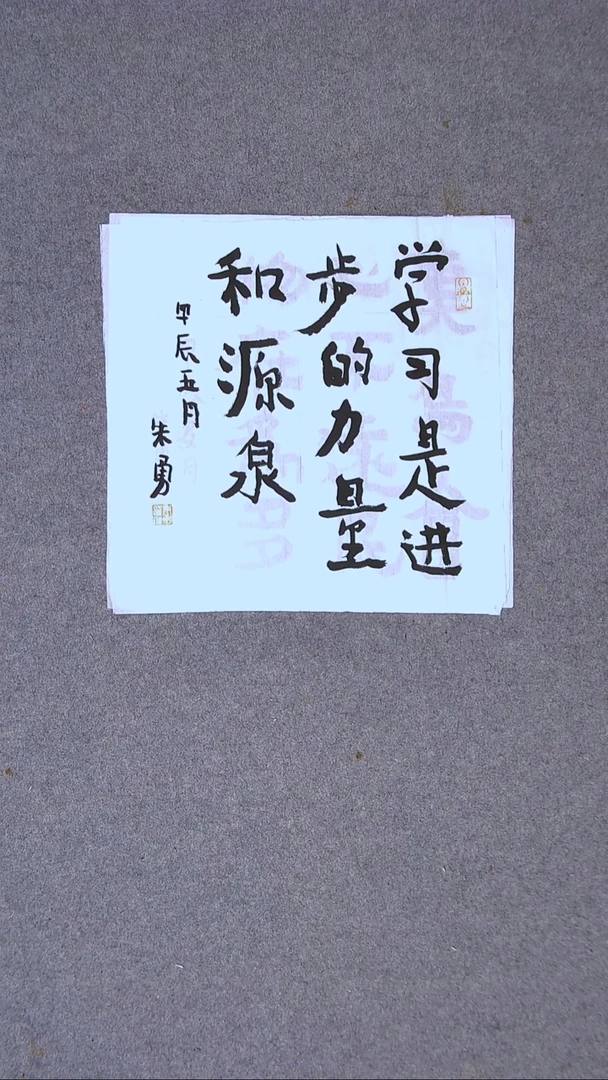 学习是进
步的力量
和源泉
甲辰五月
朱勇